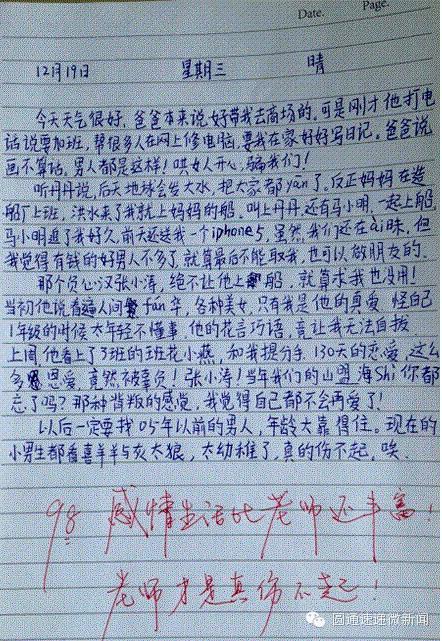 Date.
Page.
12月19日 星期三 晴
今天天气很好，爸爸本来说好带我去商场的，可是刚才他打电
话说要加班，帮很多人在网上修电脑，要我在家好好写日记。爸爸说
画不算话，男人都是这样！哄女人开心，骗我们！
听丹丹说，后天地球会发大水，把大家都yān了。反正妈妈在造
船厂上班，洪水来了我就上妈妈的船。叫上丹丹，还有马小明，一起上船。
马小明追了我好久，前天还送我一个iphone5，虽然我们还在ài昧，但
我觉得有钱的好男人不多了，就算最后不能取我，也可以做朋友的。
那个负心汉张小涛，绝不让他上船，就算求我也没用！
当初他说看遍人间fán华，各种美女，只有我是他的真爱，怪自己
1年级的时候太年轻不懂事，他的花言巧语，竟让我无法自拔
上周他看上了3班的班花小燕，和我提分手，130天的恋爱，这么
多恩爱，竟然被辜负！张小涛！当年我们的山盟海Shì你都
忘了吗？那种背叛的感觉，我觉得自己都不会再爱了！
以后一定要找05年以前的男人，年龄大靠得住。现在的
小男生都看喜羊羊与灰太狼，太幼稚了，真的伤不起，唉。
98 感情生活比老师还丰富！
老师才是真伤不起！
圆通速递微新闻